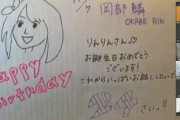 岡部麟
OKABE RIN
りんりんさん♪
お誕生日おめでとう
ございます!
これからいっぱいお話ししたいです
さいっ!!
HAPPY
Birthday